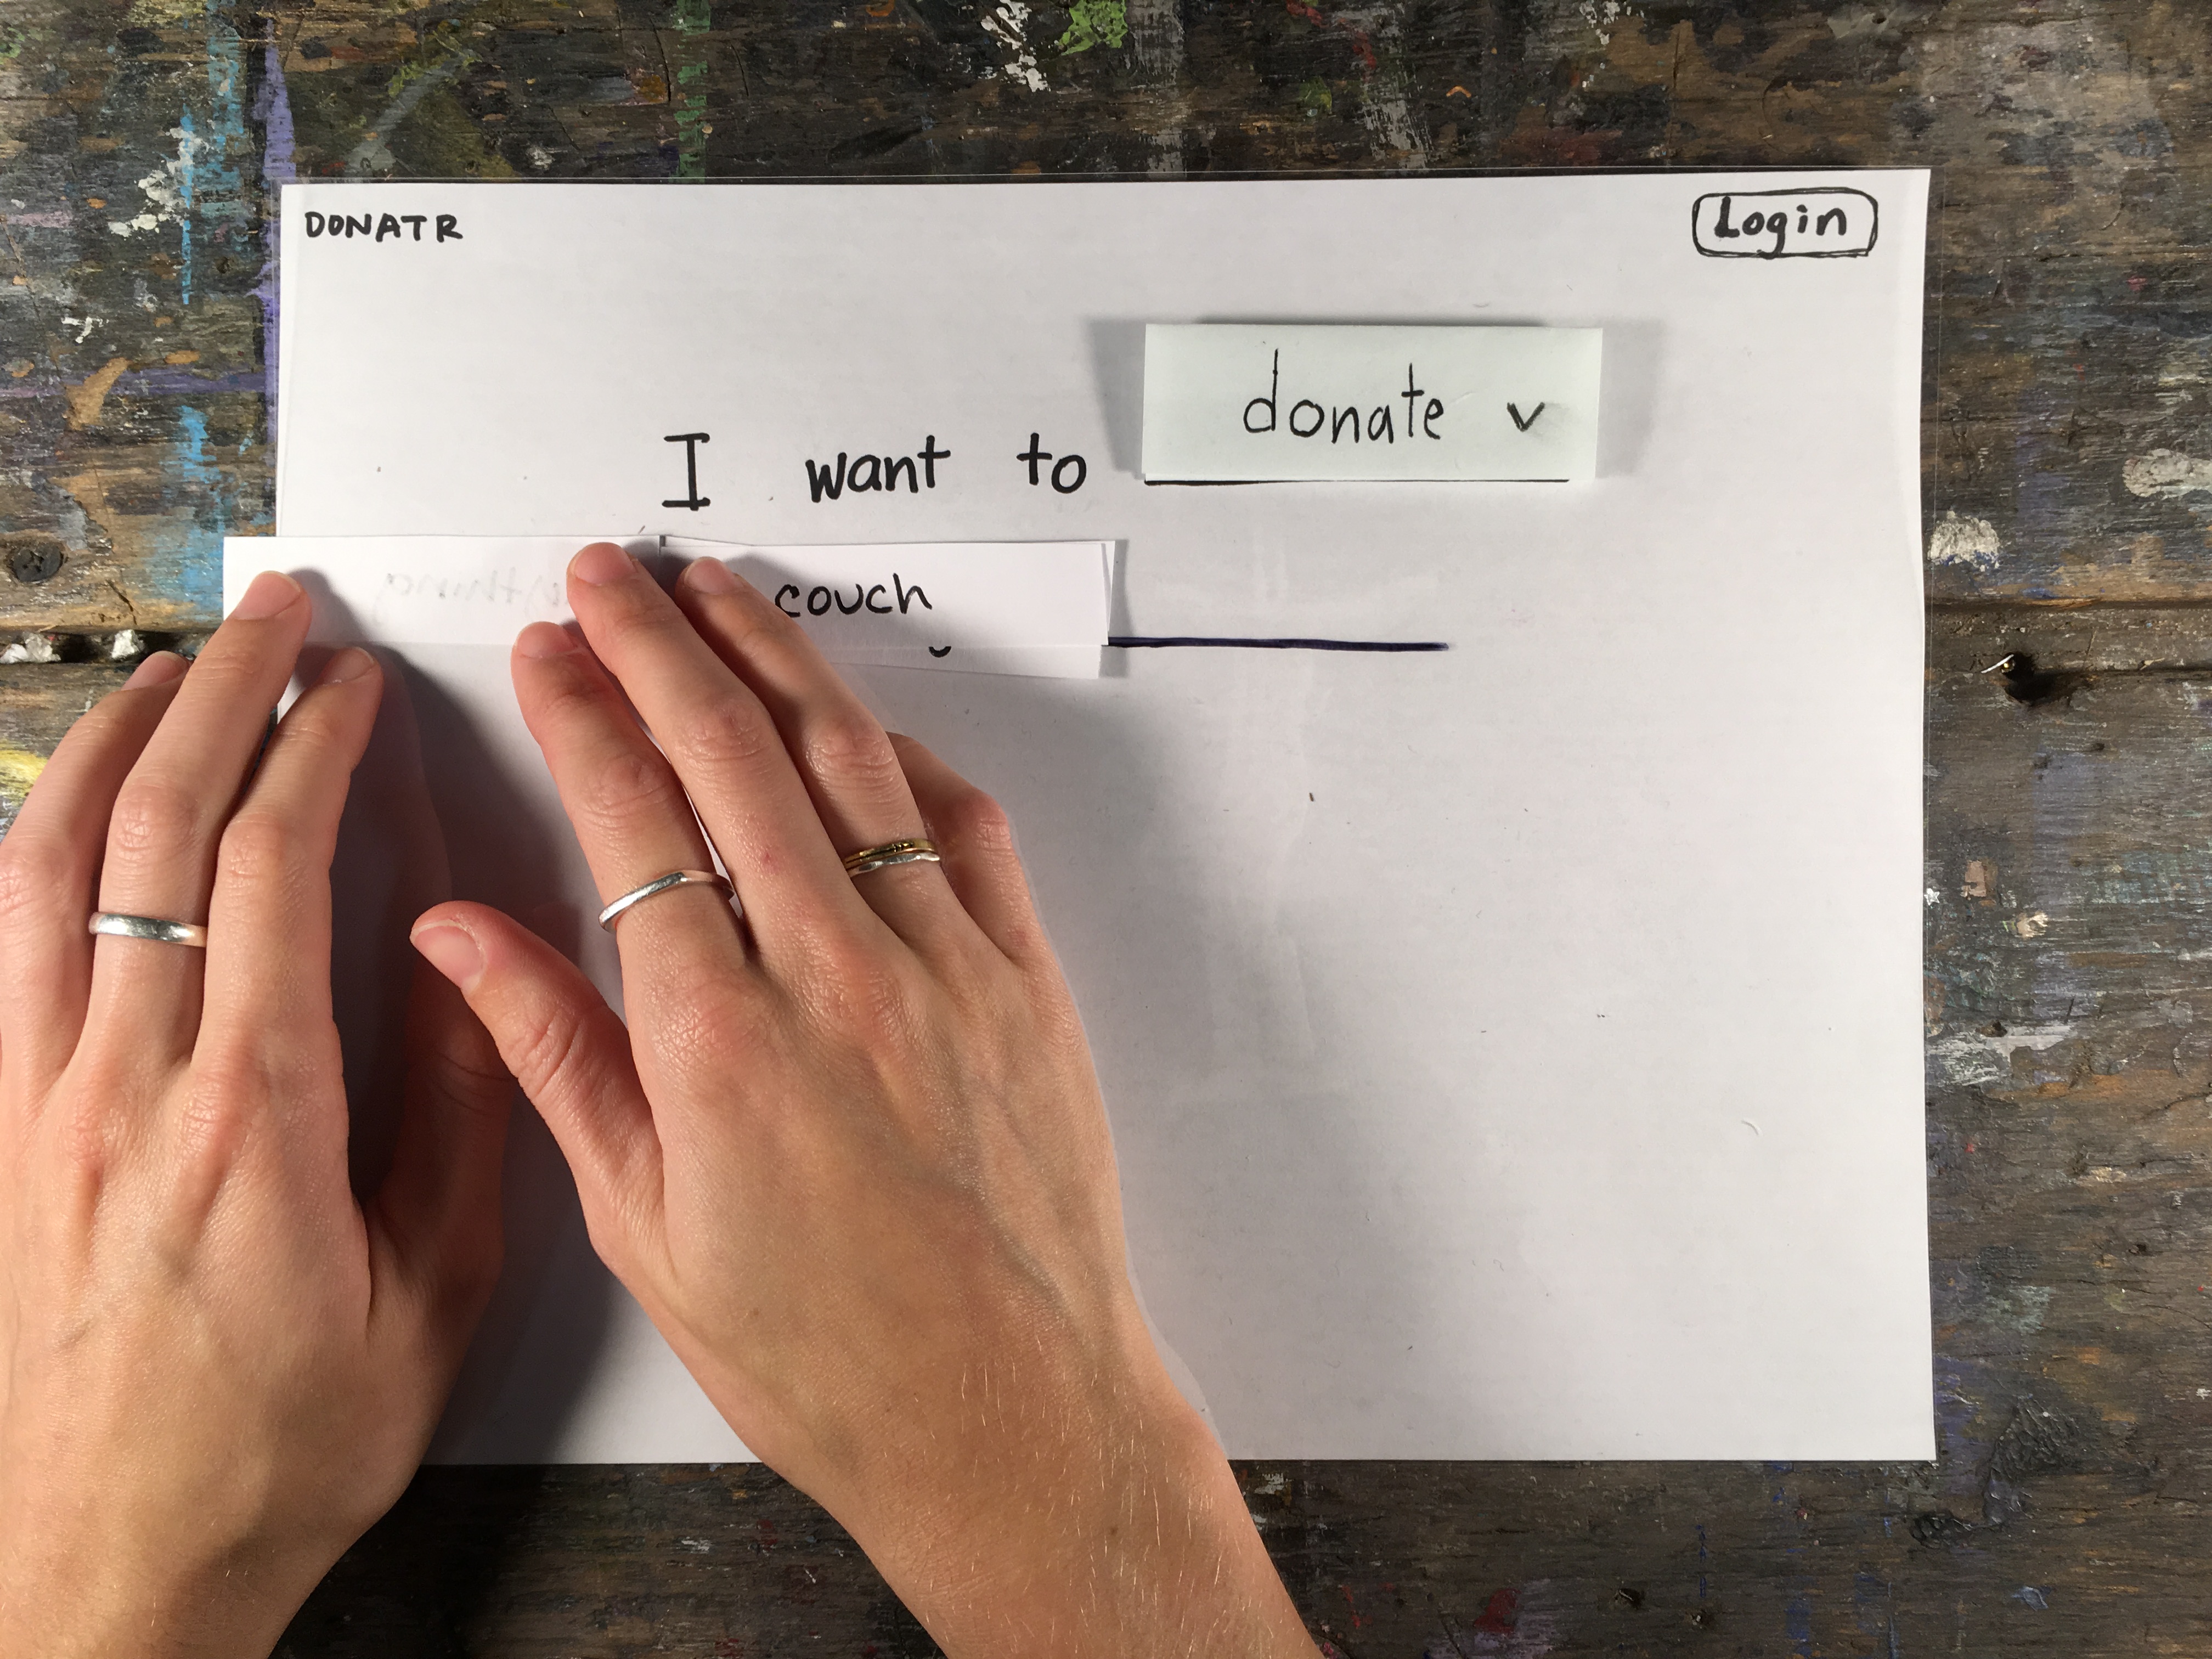 DONATR
Login
I want to donate v
couch